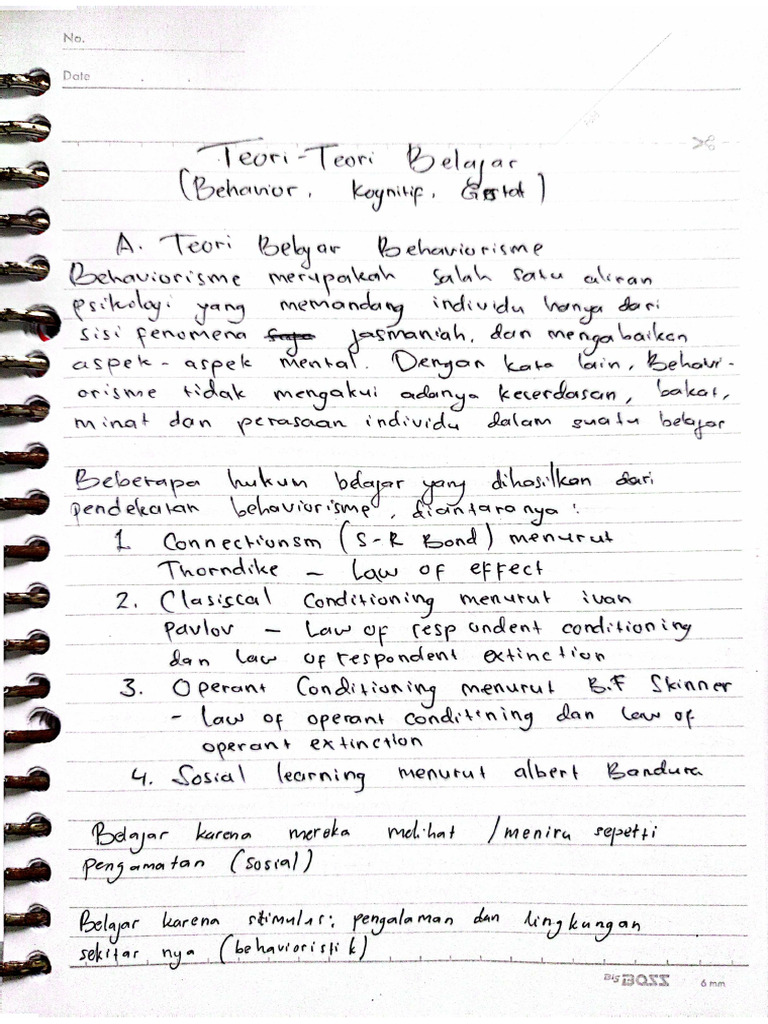 No.
Date
Teori-Teori Belajar
(Behavior, Kognitif, Gestat)
A. Teori Belajar Behaviorisme
Behaviorisme merupakah salah satu aliran
psikologi yang memandang individu hanya dari
sisi fenomena jasmaniah, dan mengabaikan
aspek-aspek mental. Dengan kata lain, Behavi-
orisme tidak mengakui adanya kecerdasan, bakat,
minat dan perasaan individu dalam suatu belajar
Beberapa hukun belajar yang dihasilkan dari
pendekatan behaviorisme, diantaranya :
1 Connectionsm (S-R Bond) menurut
Thorndike - Law of effect
2. Clasiscal Conditioning menurut ivan
Pavlov - Law of respondent conditioning
dan law of respondent extinction
3. Operant Conditioning menurut B.F Skinner
- Law of operant conditining dan Law of
operant extinction
4. Sosial learning menurut albert Bandura
Belajar karena mereka melihat /meniru sepetti
pengamatan (sosial)
Belajar karena stimulus: pengalaman dan lingkungan
sekitar nya (behavioristik)
BIG BOSS 6 mm